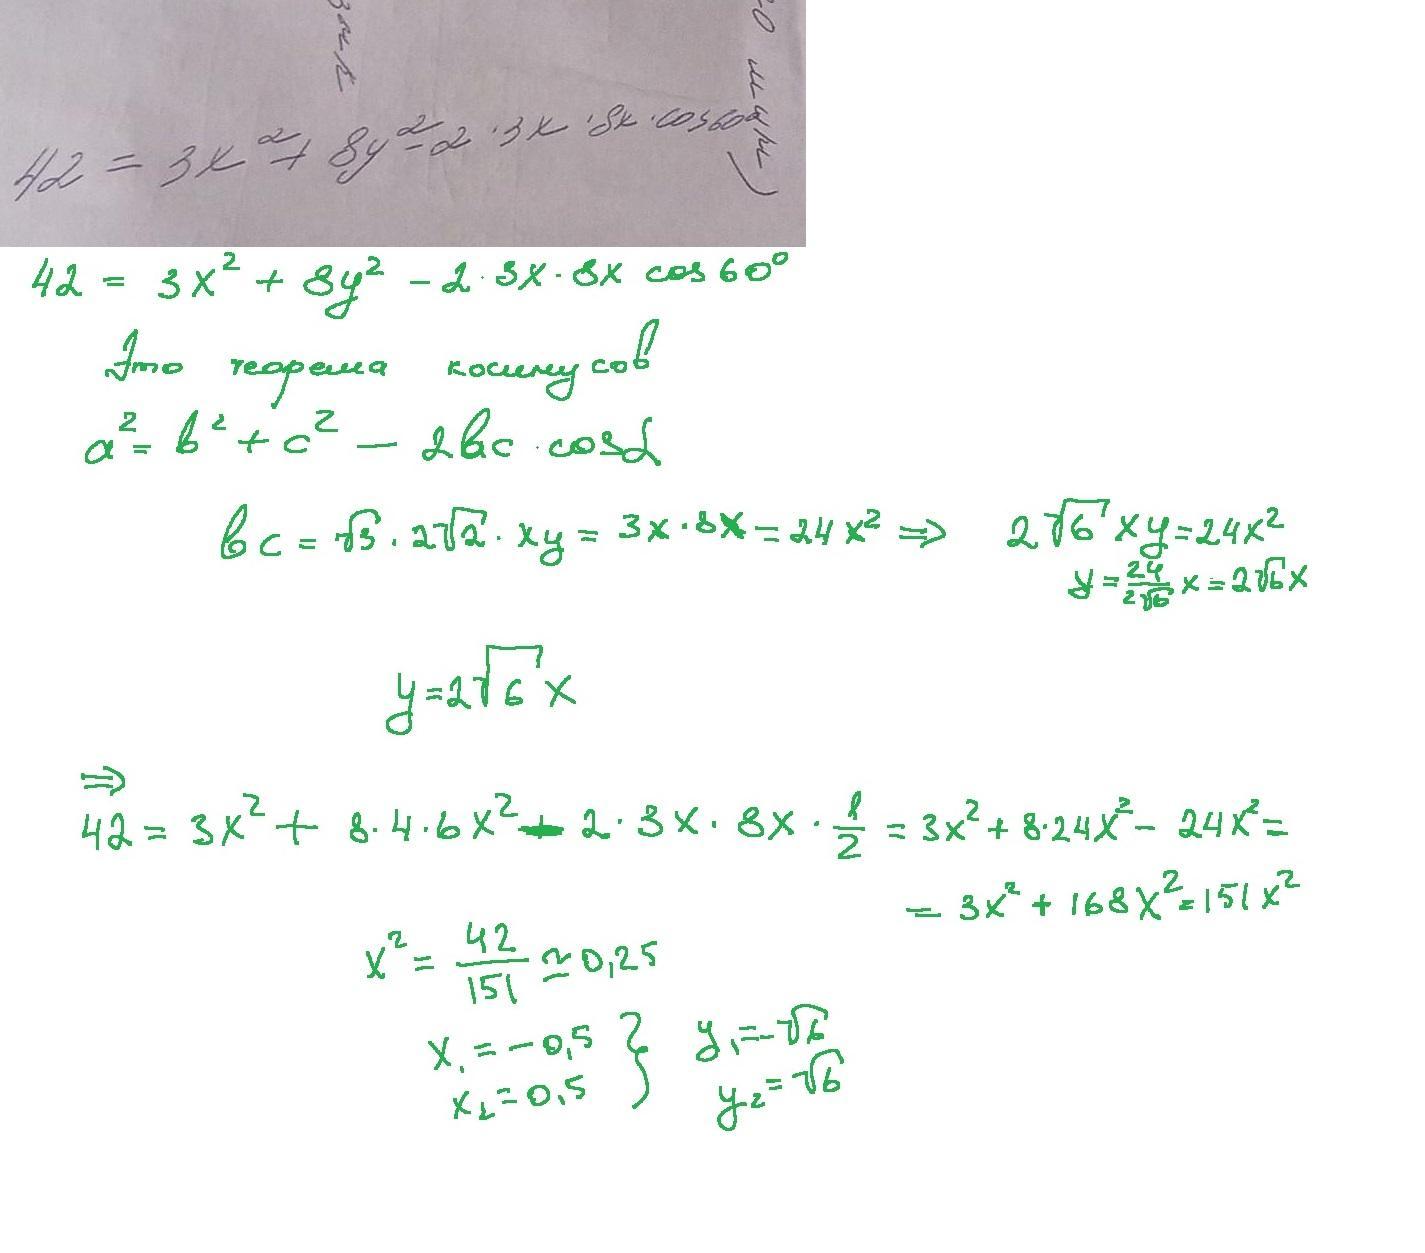 42 = 3x² + 8y² - 2 · 3x · 8x · cos60
42 = 3x² + 8y² - 2 · 3x · 8x cos 60°
Это теорема косинусов
a² = b² + c² - 2bc · cosα
bc = √3 · 2√2 · xy = 3x · 8x = 24x² ⇒ 2√6 xy = 24x²
y = 24/2√6 x = 2√6 x
y = 2√6 x
⇒
42 = 3x² + 8·4·6x² - 2 · 3x · 8x · 1/2 = 3x² + 8·24x² - 24x² =
= 3x² + 168x² = 151x²
x² = 42/151 ≃ 0,25
x₁ = -0,5 } y₁ = -√6
x₂ = 0,5 y₂ = √6